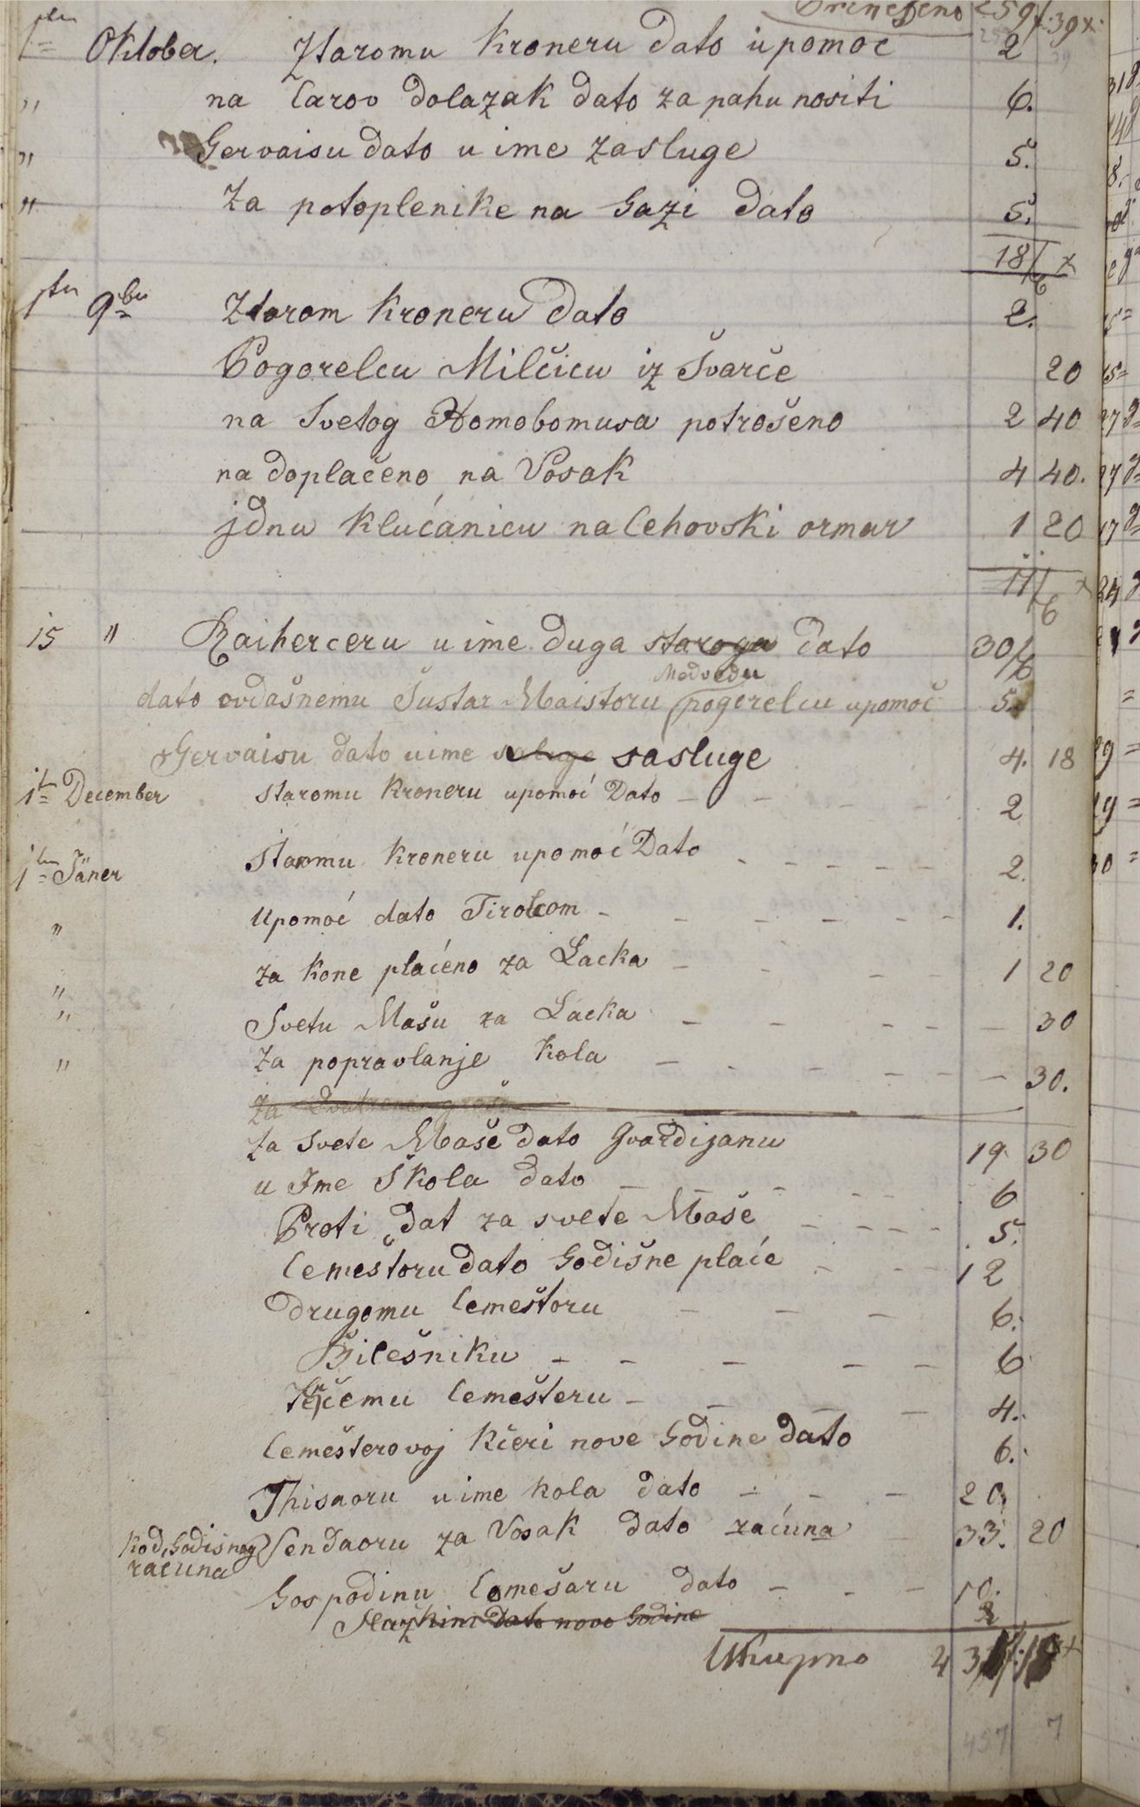 Prenešeno 259 39 x
1ten Oktober. Ztaromu Kroneru dato upomoc 2
" na Carov dolazak dato za pahu nositi 6.
" Gervaisu dato u ime zasluge 5.
" Za potoplenike na Gazi dato 5.
18 x
1ten 9ber Ztarom Kroneru dato 2.
Pogorelcu Milčicu iz Švarče 20
na Svetog Homobomusa potrošeno 2 40
na doplačeno na Vosak 4 40.
jdnu Klućanicu na Cehovski ormar 1 20
11 x
15 " Raiherceru u ime duga staroga dato 30
Medvedu
dato ovdašnemu Šustar Maistoru pogorelcu upomoč 5.
Gervaisu dato u ime sasluge 4. 18
1te December staromu Kroneru upomoć Dato - - - - 2
1ten Jäner Staromu Kroneru upomoć Dato - - - - - 2.
" Upomoć dato Tirolcom - - - - - - 1.
" za Kone plaćeno za Lacka - - - - 1 20
" Svetu Mašu za Lacka - - - - - 30
" Za popravlanje Kola - - - - - - 30.
Za
za Svete Maše dato Gvardijanu 19 30
u Ime Škola dato - - - - - 6
Proti dat za svete Maše - - - - 5.
Cemeštoru dato Godišne plaće - - - 12
drugomu Cemeštoru - - - 6.
Bilešniku - - - - - 6
Trčemu Cemešteru - - - - 4.
Cemešterovoj Kćeri nove Godine dato 6.
Thisaoru u ime Kola dato - - - 20
Kod Godisnog Sendaoru za Vosak dato zaćuna 33. 20
računa
Gospodinu Comešaru dato - - - 10.
dato novo Godine 2
Ukupno 43
457 7